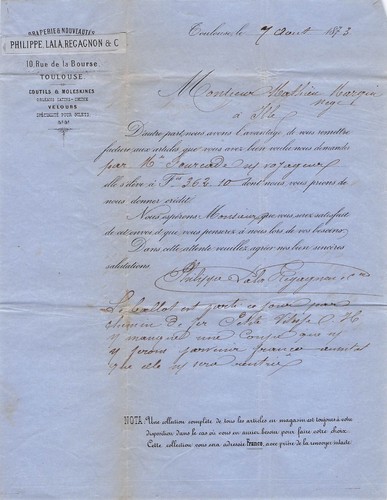 DRAPERIE & NOUVEAUTÉS
PHILIPPE, LALA, REGAGNON & C
10, Rue de la Bourse
TOULOUSE
COUTILS & MOLESKINES
VELOURS
SPÉCIALITÉ POUR GILETS
Toulouse, le 7 Aout 1873
Monsieur Mathieu
Nég
à Ille
D'autre part, nous avons l'avantage, de vous remettre
facture aux articles que vous avez bien voulu nous demander
par Mr Fourcade n/ voyageur
elle s'élève à Frs 362.10 dont nous vous prions de
nous donner crédit.
Nous espérons Monsieur que vous serez satisfait
de cet envoi et que vous penserez à nous lors de vos besoins
Dans cette attente veuillez agréer nos bien sincères
salutations
Philippe Lala Regagnon & Cie
Le ballot est parti ce jour par
chemin de fer Petite Vitesse. Il
y manque une Coupe que n/
y ferons parvenir franco aussitôt
que elle n/ sera rentrée
NOTA: Une collection complète de tous les articles en magasin est toujours à votre
disposition dans le cas où vous en auriez besoin pour faire votre choix
Cette collection vous sera adressée Franco, avec prière de la renvoyer intacte